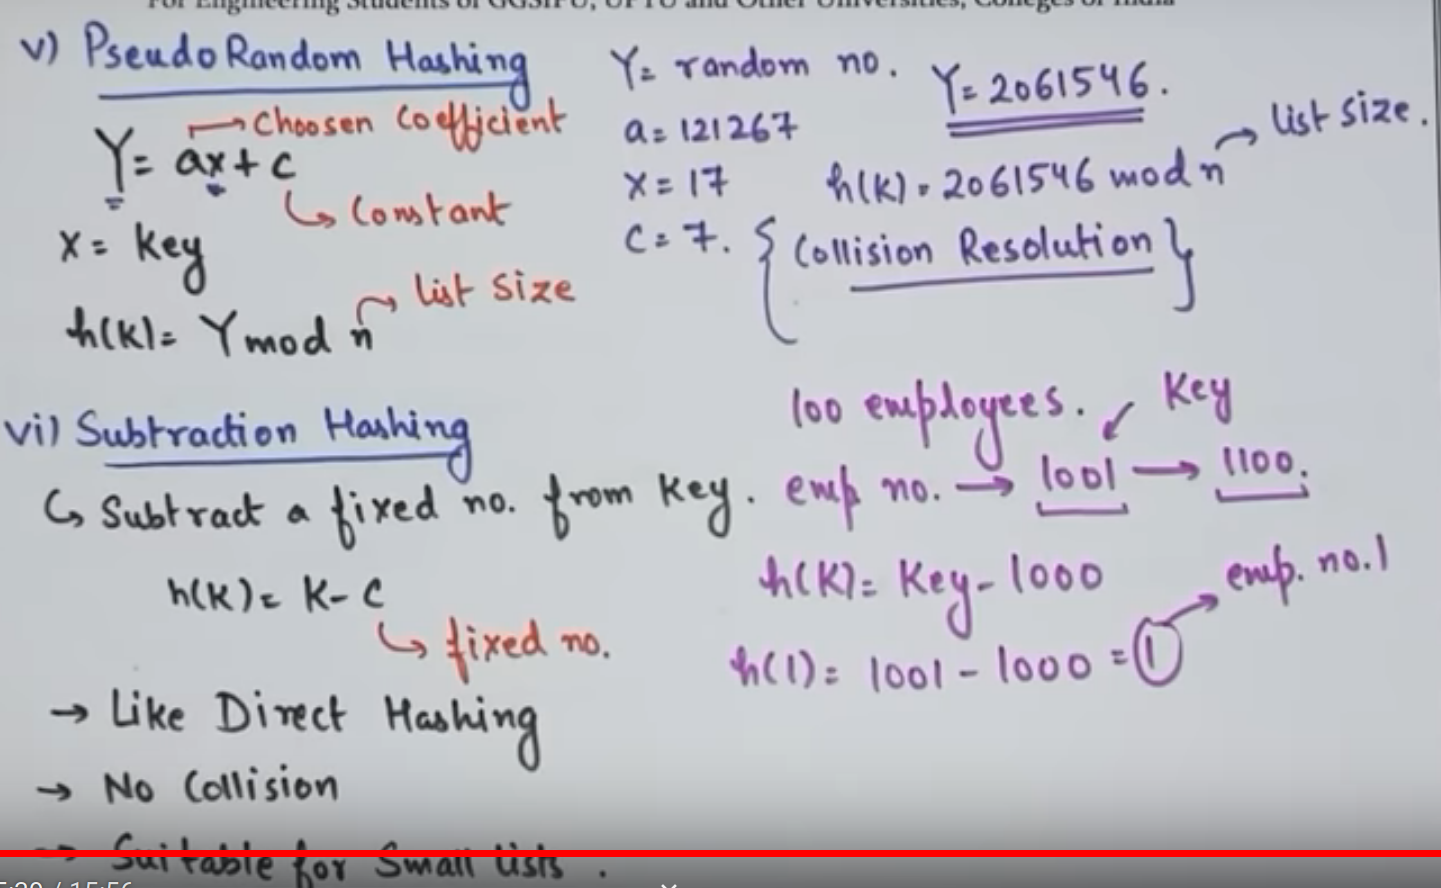 For Engineering Students of GGSIPU, UPTU and Other Universities, Colleges of India
v) Pseudo Random Hashing
Choosen Coefficient
Y = ax + c
Constant
x = key
list size
h(k) = Y mod n
Y = random no.
a = 121267
x = 17
c = 7.
Y = 2061546.
list size.
h(k) = 2061546 mod n
{Collision Resolution}
vi) Subtraction Hashing
↳ Subtract a fixed no. from key.
h(k) = k - c
fixed no.
→ Like Direct Hashing
→ No Collision
→ Suitable for Small lists.
100 employees.
Key
emp no. → 1001 → 1100.
h(k) = Key - 1000
emp. no. 1
h(1) = 1001 - 1000 = 1
/ 15:56